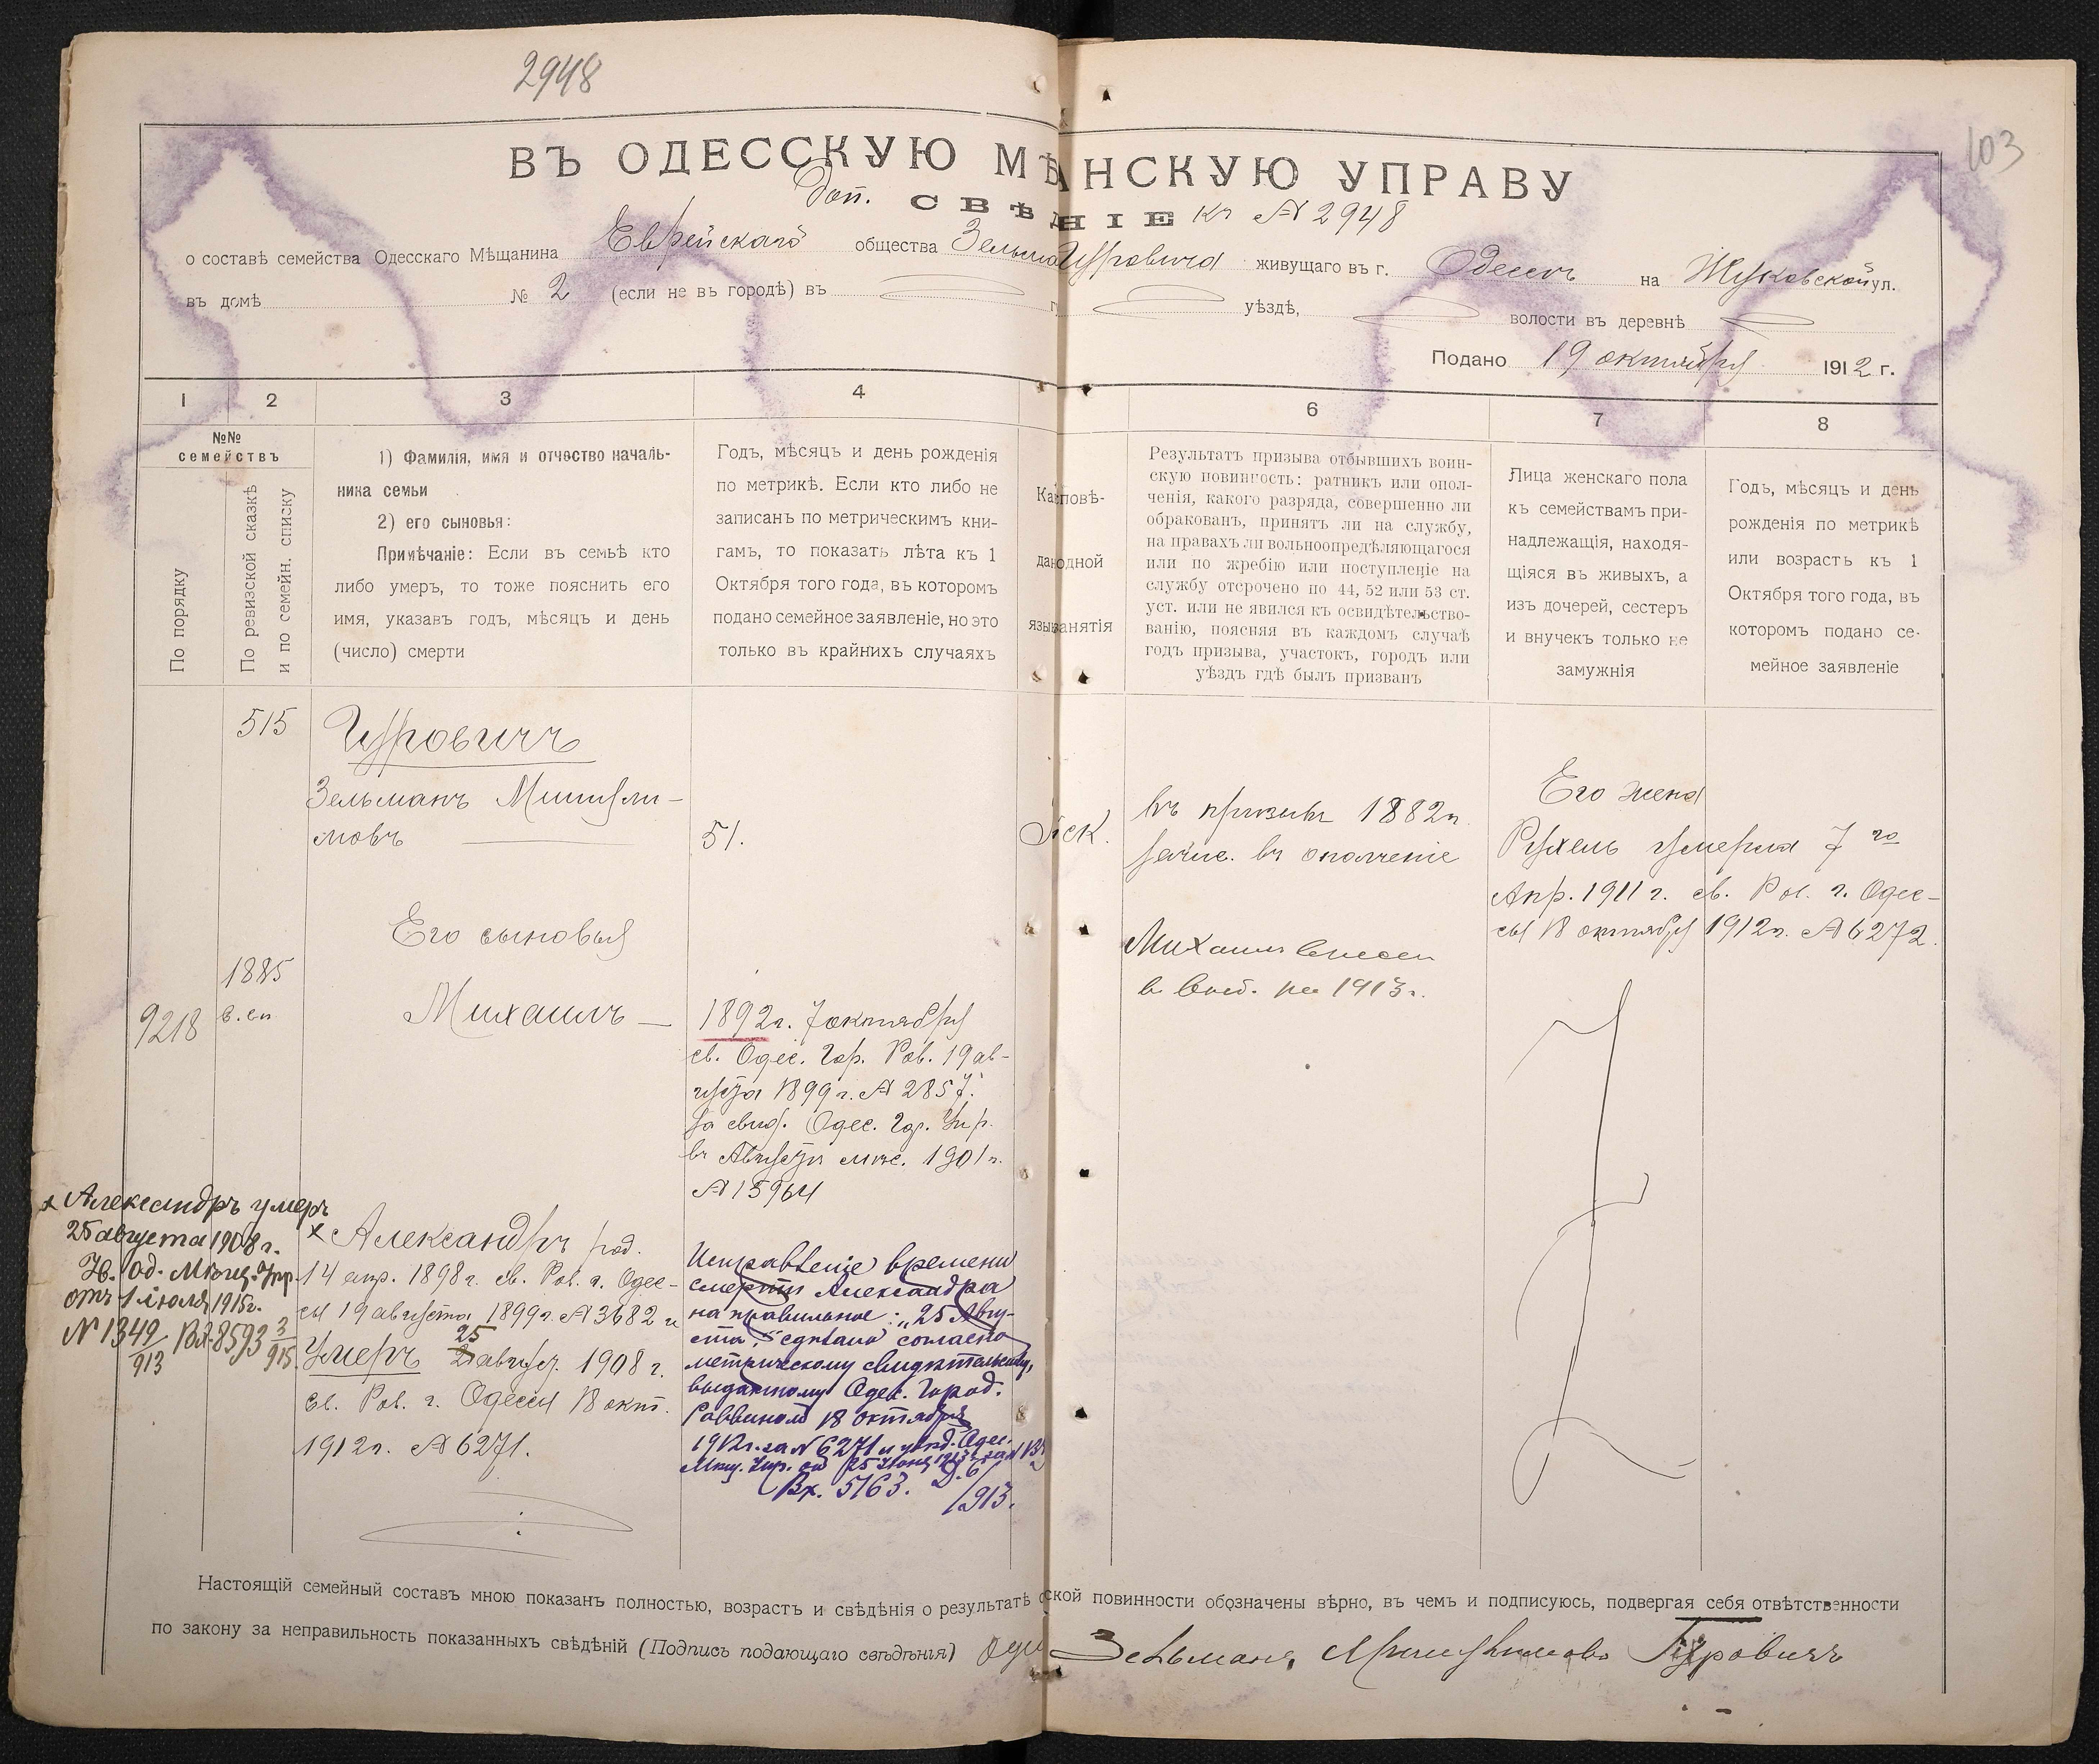 2948
103
ВЪ ОДЕССКУЮ МѢ АНСКУЮ УПРАВУ
Доп. СВѢД НІЕ къ № 2948
о составѣ семейства Одесскаго Мѣщанина Еврейскаго общества Зельма Гуровича живущаго въ г. Одессѣ на Жуковской ул.
въ домѣ № 2 (если не въ городѣ) въ г уѣздѣ, волости въ деревнѣ
Подано 19 октября 1912 г.
1 2 3 4 6 7 8
№№
семействъ
По порядку
По ревизской сказкѣ
и по семейн. списку
1) Фамилія, имя и отчество началь-
ника семьи
2) его сыновья:
Примѣчаніе: Если въ семьѣ кто
либо умеръ, то тоже пояснить его
имя, указавъ годъ, мѣсяцъ и день
(число) смерти
Годъ, мѣсяцъ и день рожденія
по метрикѣ. Если кто либо не
записанъ по метрическимъ кни-
гамъ, то показать лѣта къ 1
Октября того года, въ которомъ
подано семейное заявленіе, но это
только въ крайнихъ случаяхъ
Ка повѣ-
да одной
язы анятія
Результатъ призыва отбывшихъ воин-
скую повинность: ратникъ или опол-
ченія, какого разряда, совершенно ли
обракованъ, принятъ ли на службу,
на правахъ ли вольноопредѣляющагося
или по жребію или поступленіе на
службу отсрочено по 44, 52 или 53 ст.
уст. или не явился къ освидѣтельство-
ванію, поясняя въ каждомъ случаѣ
годъ призыва, участокъ, городъ или
уѣздъ гдѣ былъ призванъ
Лица женскаго пола
къ семействамъ при-
надлежащія, находя-
щіяся въ живыхъ, а
изъ дочерей, сестеръ
и внучекъ только не
замужнія
Годъ, мѣсяцъ и день
рожденія по метрикѣ
или возрастъ къ 1
Октября того года, въ
которомъ подано се-
мейное заявленіе
515
Гуровичъ
Зельманъ Мишули-
мовъ
51.
въ призывъ 1882 г.
зачис. въ ополченіе
Его жена
Рухель умерла 7 го
Апр. 1911 г. св. Рав. г. Одес-
сы 18 октября 1912 г. № 6272.
Его сыновья
1885
9218
Михаилъ
1892 г. 7 октября
св. Одес. Гор. Рав. 19 ав-
густа 1899 г. № 2857.
За свид. Одес. Гор. Упр.
въ Августѣ мѣс. 1901 г.
№ 15964
Михаилъ внесен
в на 1913 г.
х Александръ умеръ
25 августа 1908 г.
Од. Мѣщ. Упр.
отъ 1 іюля 1915 г.
№ 1349/913 Вх. 8593 3/915
х Александръ род.
14 апр. 1898 г. св. Рав. г. Одес-
сы 19 августа 1899 г. № 3682 и
Умеръ 25 август. 1908 г.
св. Рав. г. Одессы 18 окт.
1912 г. № 6271.
Исправленіе времени
смерти Александра
на правильное: „25 Авгу-
ста" сдѣлано согласно
метрическому свидѣтельству,
выданному Одес. Город.
Раввиномъ 18 октября
1912 г. за № 6271 и Одес.
Мѣщ. Упр. от 25 Іюня 1913 г.
Вх. 5163.
1913.
Настоящій семейный составъ мною показанъ полностью, возрастъ и свѣдѣнія о результатѣ ской повинности обозначены вѣрно, въ чемъ и подписуюсь, подвергая себя отвѣтственности
по закону за неправильность показанныхъ свѣдѣній (Подпись подающаго свѣдѣнія) Зельманъ Мишулимовъ Гуровичъ